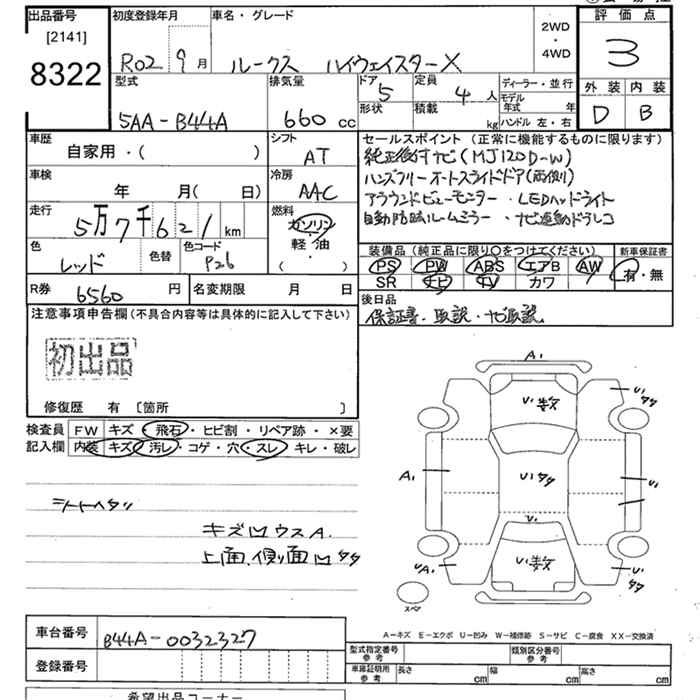 出品番号
[2141]
8322
初度登録年月
R02 9月
車名・グレード
ルークス ハイウェイスターX
2WD
・
4WD
評価点
3
外装 内装
D B
型式
5AA-B44A
排気量
660 cc
ドア
5
形状
定員
4人
積載
kg
ディーラー・並行
モデル年式 年
ハンドル 左・右
車歴
自家用・( )
シフト
AT
車検
年 月( 日)
冷房
AAC
走行
5万7千621km
燃料
ガソリン
軽油
( ・ )
色
レッド
色替
色コード
P26
R券
6560円
名変期限 月 日
セールスポイント (正常に機能するものに限ります)
純正後付ナビ(MJ120D-W)
ハンズフリーオートスライドドア(両側)
アラウンドビューモニター・LEDヘッドライト
自動防眩ルームミラー・ナビ連動ドラレコ
装備品 (純正品に限り〇をつけてください)
新車保証書
PS PW ABS エアB AW
SR ナビ TV カワ
有・無
後日品
保証書・取説・ナビ取説
注意事項申告欄 (不具合内容等は具体的に記入して下さい)
初出品
修復歴 有 〔箇所 〕
検査員記入欄
FW キズ・飛石・ヒビ割・リペア跡・×要
内装 キズ・汚レ・コゲ・穴・スレ・キレ・破レ
シートヘタリ
キズ凹ウスA.
上面、側面凹タタ
A1
U1数
U1
タタ
A1
U1タタ
U1
U1
U1数
UA1
U1
タタ
スペア
A-キズ E-エクボ U-凹み W-補修跡 S-サビ C-腐食 XX-交換済
車台番号
B44A-0032327
登録番号
型式指定番号
参考
類別区分番号
参考
車庫証明用
参考
長さ cm
幅 cm
高さ cm
希望出品コーナー